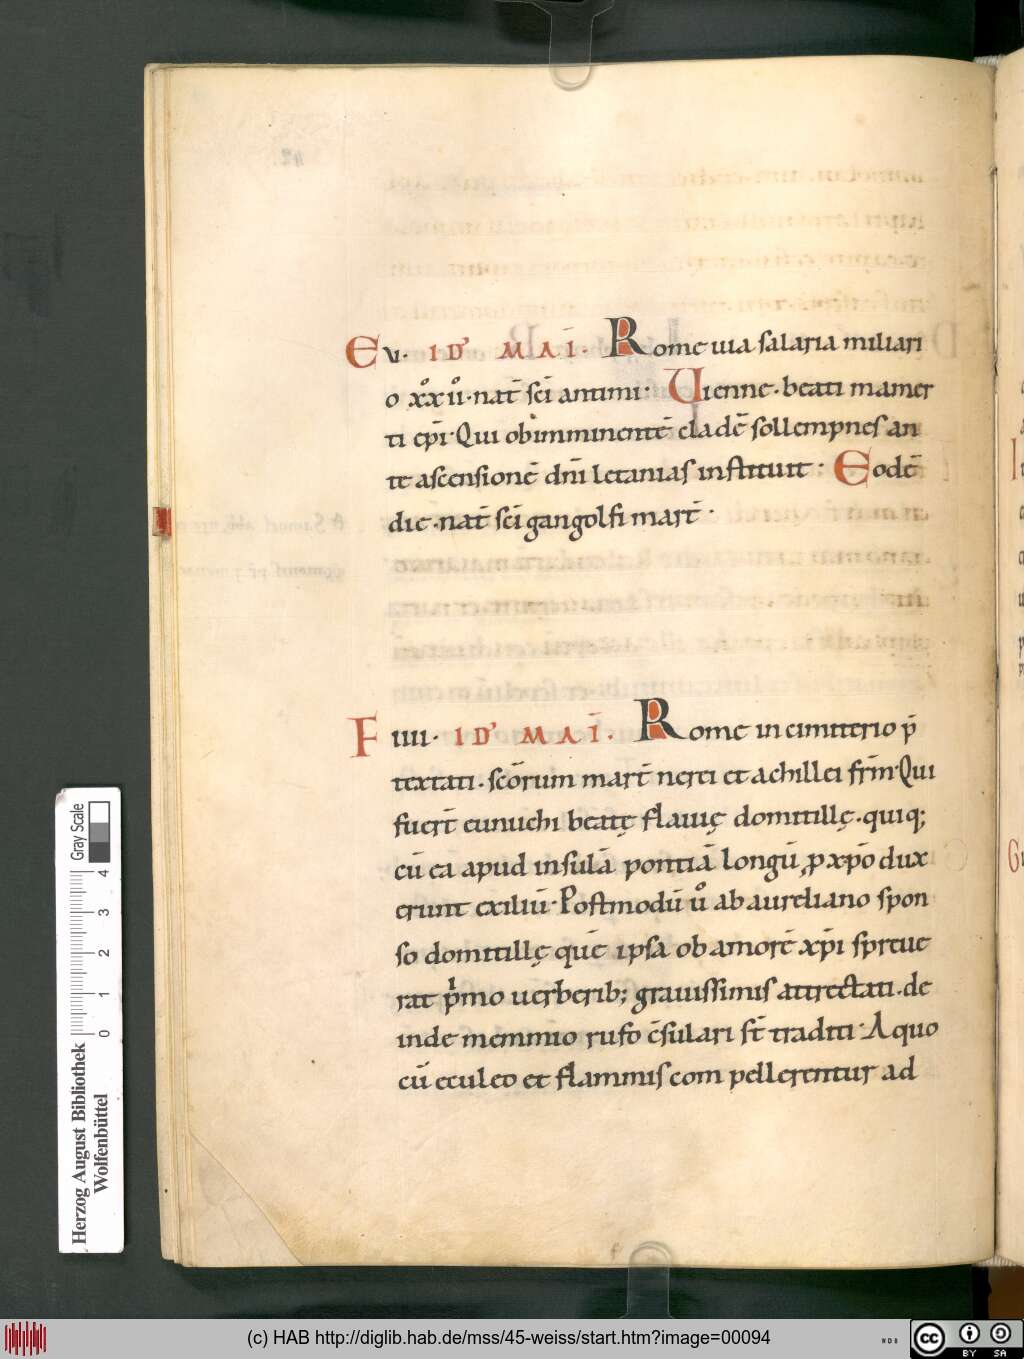 E v· ID' MAI̅· Rome uia salaria miliari
o xͦxͦ uͦ· nat̅ sc̅i antimi: Uienne· beati mamer
ti ep̅i· Qui ob imminente̅ clade̅ sollempnes an
te ascensione̅ dn̅i letanias instituit· Eode̅
die· nat̅ sc̅i gangolfi mart̅·
F IIII· ID' MAI̅· Rome in cimiterio p̅
textati· sc̅orum mart̅ nerei et achillei fr̅m· Qui
fuer̅t eunuchi beatę flauię domitillę· quiq;
cu̅ ea apud insula̅ pontia̅ longu̅ ꝓ xp̅o dux
erunt exiliu̅· Postmodu̅ uͦ ab aureliano spon
so domitillę que̅ ipsa ob amore̅ xp̅i spreue
rat pͥmo uerberib; grauissimis attrectati· de
inde memmio rufo c̅sulari st̅ traditi· A quo
cu̅ eculeo et flammis com pellerentur ad
Gray Scale
0 1 2 3 4
Herzog August Bibliothek
Wolfenbüttel
(c) HAB http://diglib.hab.de/mss/45-weiss/start.htm?image=00094
WDB
cc BY SA